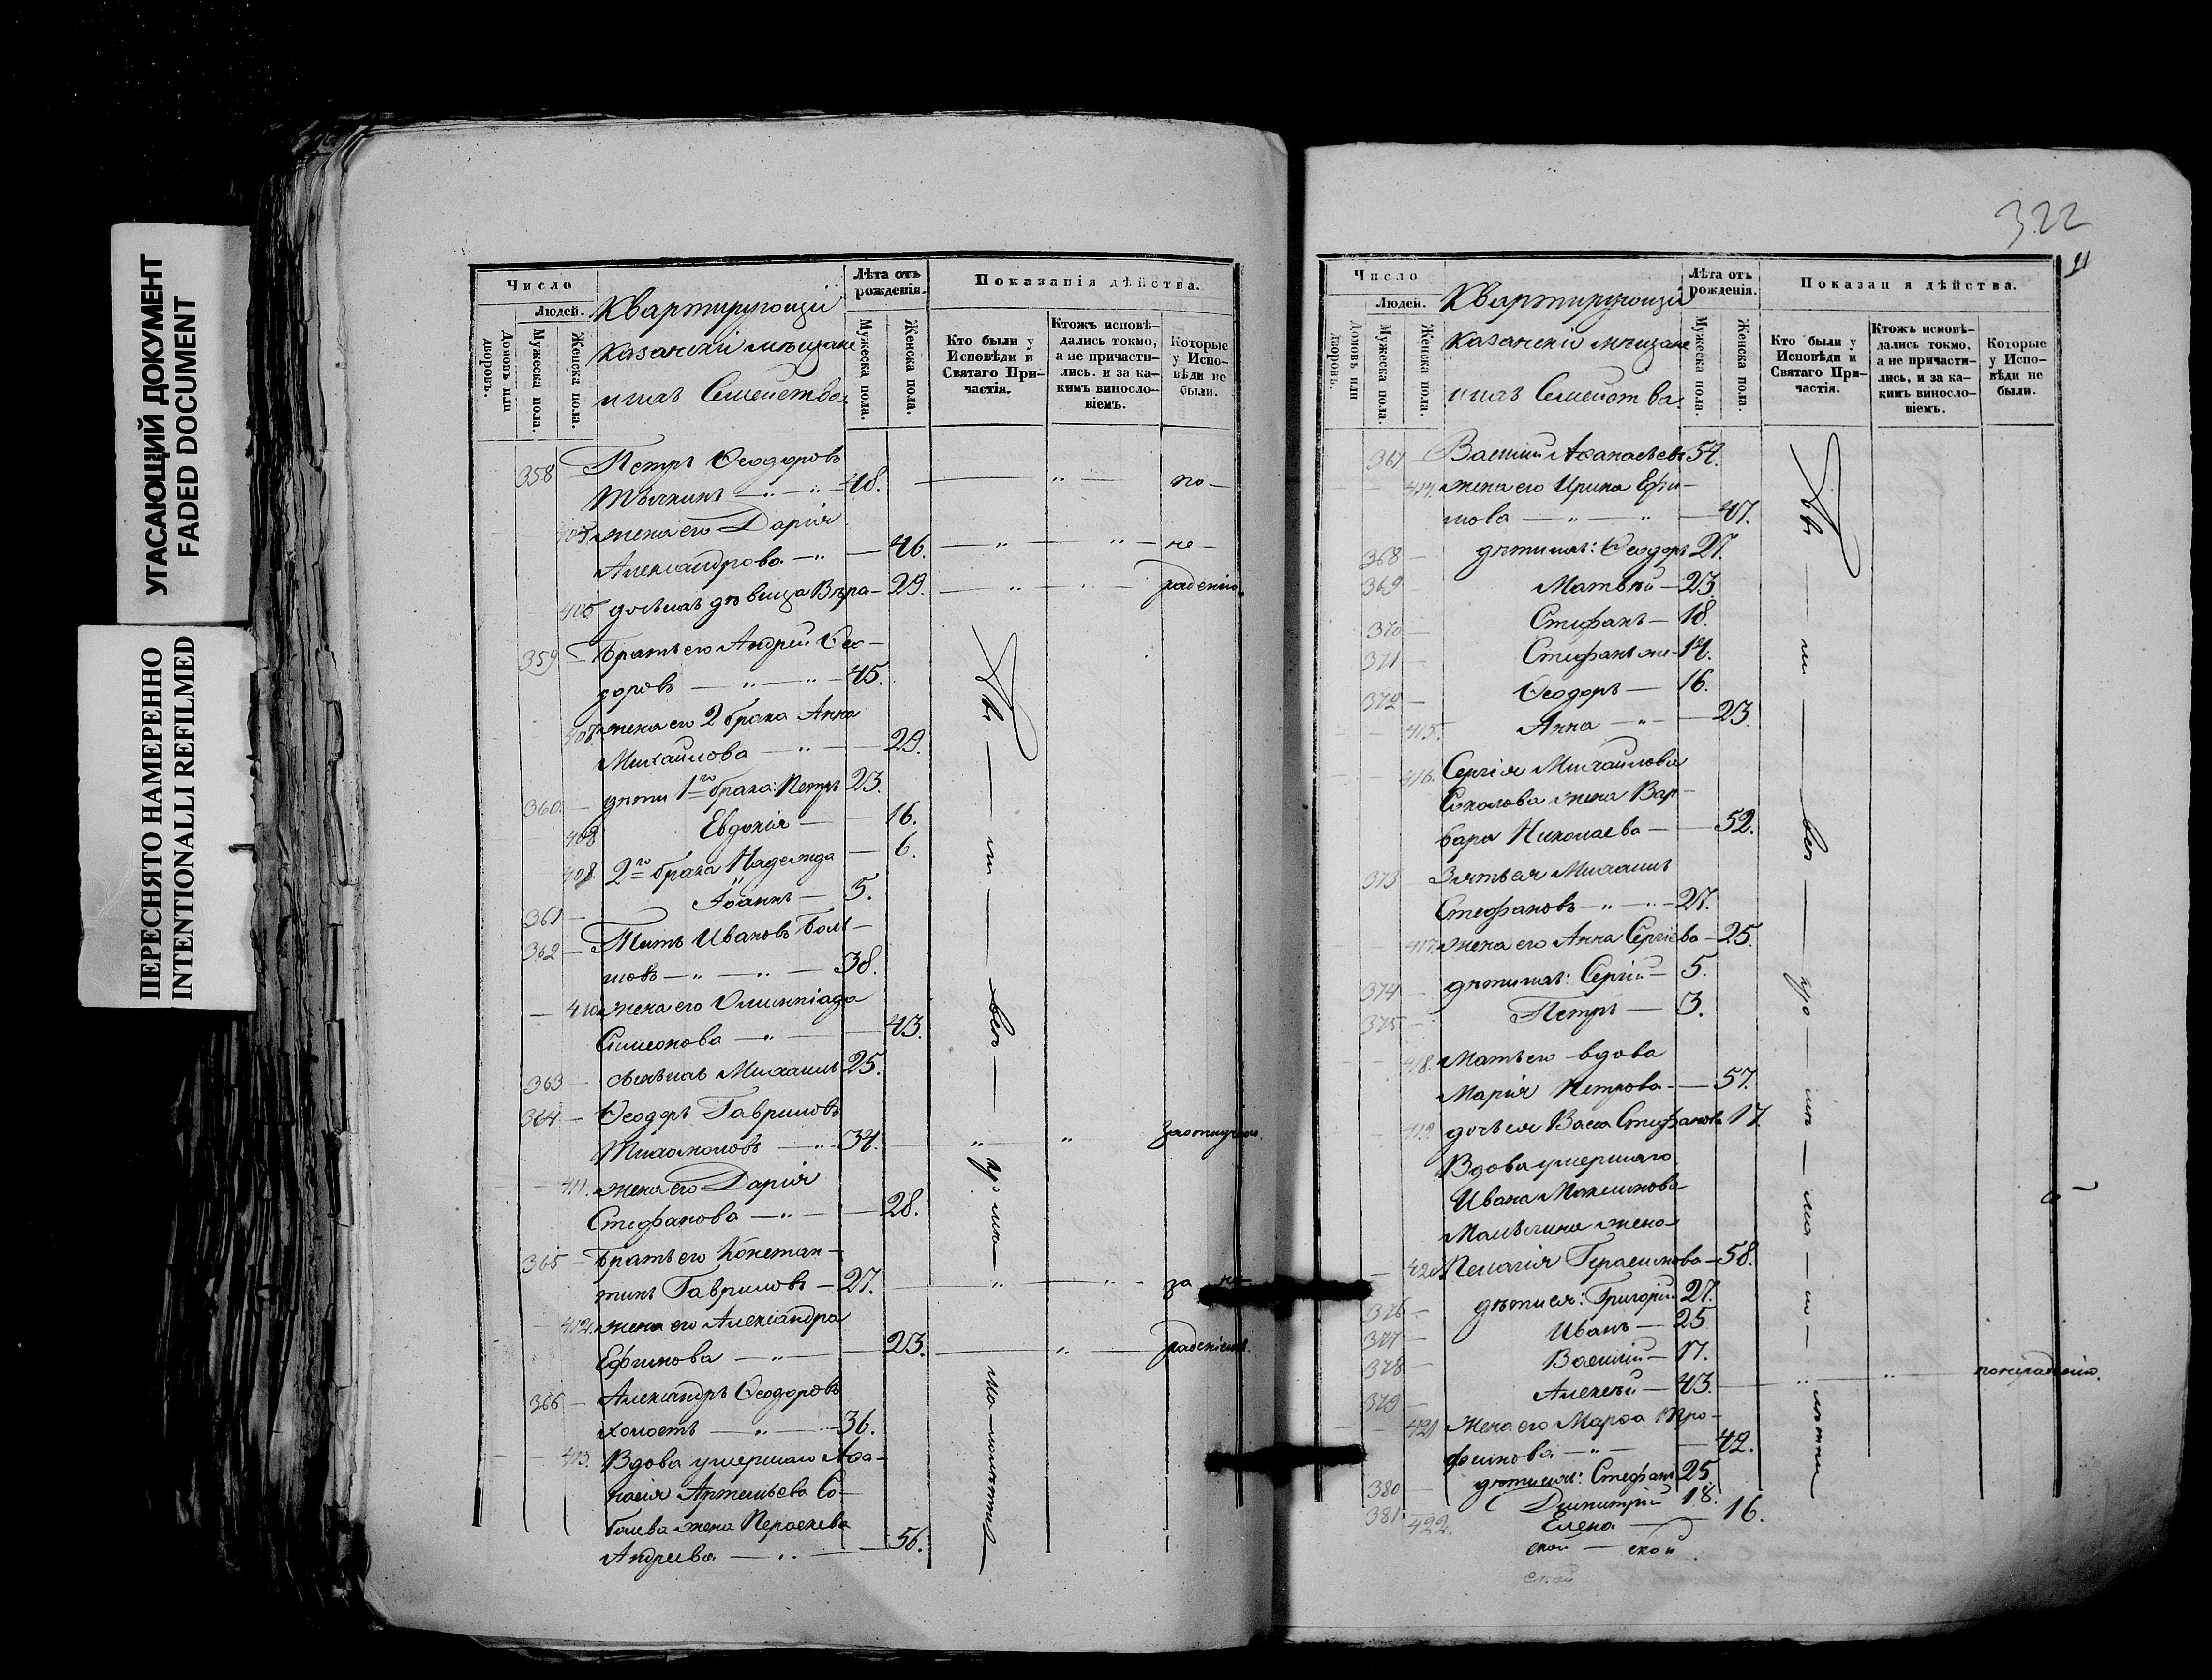 УГАСАЮЩИЙ ДОКУМЕНТ
FADED DOCUMENT
ПЕРЕСНЯТО НАМЕРЕННО
INTENTIONALLI REFILMED
Число
Людей.
Домовъ или дворовъ.
Мужеска пола.
Женска пола.
Квартирующіи
казанскіи мѣщане
и ихъ Семейства.
Лѣта отъ рожденія.
Мужеска пола.
Женска пола.
Показанія дѣйства.
Кто были у Исповѣди и Святаго Причастія.
Ктожъ исповѣдались токмо, а не причастились. и за какимъ винословіемъ.
Которые у Исповѣди не были.
358 Петръ Ѳеодоровъ
48. по
жена его Дарія
Александрова 46. не
406 дочь ихъ дѣвица Вѣра 29. радѣнію.
359 Братъ его Андрей Ѳео-
доровъ 45.
407 жена его 2 брака Анна
Михайлова 29.
360 дѣти 1го брака: Петръ 23.
408 Евдокія 16.
409 2го брака Надежда 6.
361 Іоаннъ 5.
362 Титъ Ивановъ
38.
410 жена его Олимпіада
Симеонова 43.
363 сынъ ихъ Михаилъ 25.
364 Ѳеодоръ Гавриловъ
34. за отлучкою.
411. жена его Дарія
Стефанова 28.
365 Братъ его Констан-
тинъ Гавриловъ 27. за не-
412. жена его Александра
Ефимова 23. радѣніемъ.
366 Александръ Ѳеодоровъ
холостъ 36.
413. Вдова умершаго Аѳа-
насія Артемьева Со-
болева жена Параскева
Андреева 56.
322
Число
Людей.
Домовъ или дворовъ.
Мужеска пола.
Женска пола.
Квартирующіи
казанскіи мѣщане
и ихъ Семейства.
Лѣта отъ рожденія.
Мужеска пола.
Женска пола.
Показан я дѣйства.
Кто были у Исповѣди и Святаго Причастія.
Ктожъ исповѣдались токмо, а не причастились, и за какимъ винословіемъ.
Которые у Исповѣди не были.
367 Василій Аѳанасьевъ 54.
414. жена его Ирина Ефи-
мова 47.
368 дѣти ихъ: Ѳеодоръ 27.
369 Матвѣй 23.
370 Стефанъ 18.
371 Стефанъ же 14.
372 Ѳеодоръ 16.
415. Анна 23.
416. Сергія Михайлова
Соколова жена Вар-
вара Николаева 52.
373 Зять ея Михаилъ
Стефановъ 27.
417. жена его Анна Сергіева 25.
374 дѣти ихъ: Сергій 5.
375 Петръ 3.
418. Мать его вдова
Марія Петрова 57.
419. дочь ея Васса Стефанова 17.
Вдова умершаго
Ивана Максимова
жена
420 Пелагія Герасимова 58.
376 дѣти ея: Григорій 27.
377 Иванъ 25
378 Василій 17.
379 Алексѣй 43. по нерадѣнію.
421 Жена его Марѳа Тро-
фимова 42.
380 дѣти ихъ: Стефанъ 25.
381. Димитрій 18.
422. Елена 16.